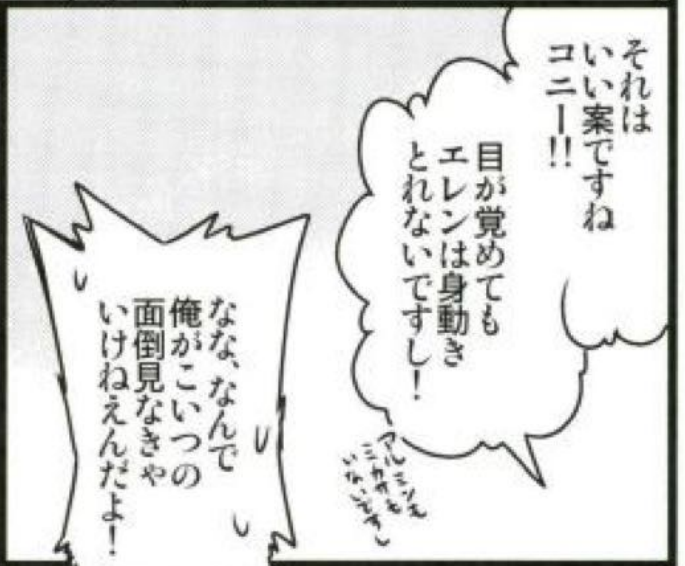 それは
いい案ですね
コニー!!
目が覚めても
エレンは身動き
とれないですし!
アルミンも
ミカサも
いないですし
なな、なんで
俺がこいつの
面倒見なきゃ
いけねえんだよ!